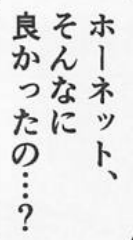 ホーネット、
そんなに
良かったの…？